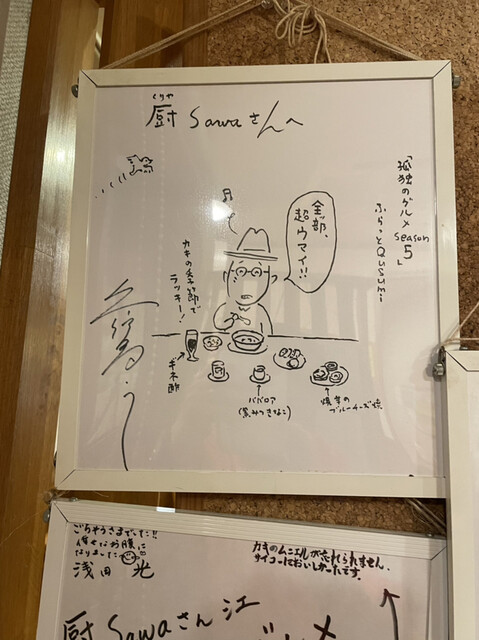 くりや
厨 Sawaさんへ
「孤独のグルメ
season
5」
ふらっとQUSUMI
全部、
超ウマイ!!
カキの季節で
ラッキー！
ババロア
(黒みつきなこ)
ブルーチーズ焼
ごちそうさまでした!!
なりました
浅田 光
カキのムニエルが忘れられません。
サイコーにおいしかったです。
厨 Sawaさん江